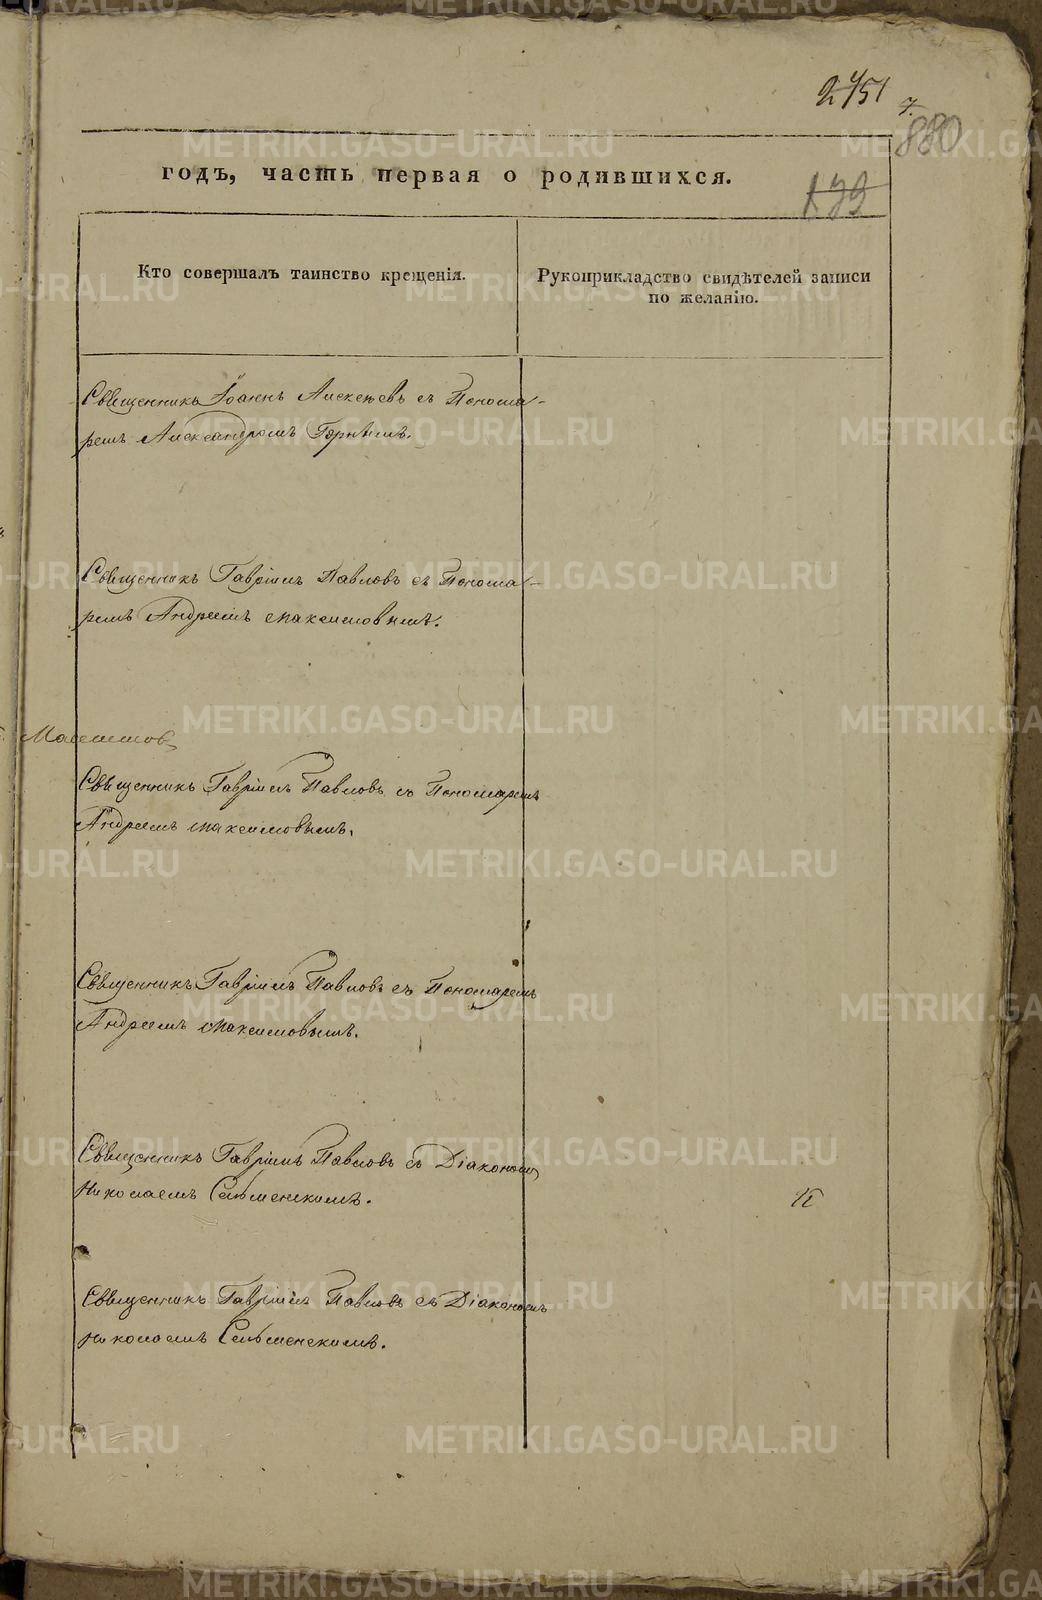 2451
7.
880
годъ, часть первая о родившихся.
139
Кто совершалъ таинство крещенія.
Рукоприкладство свидѣтелей записи
по желанію.
Священникъ Іоаннъ съ Понома-
ремъ Александромъ
Священникъ Гавріилъ Павловъ съ Понома-
ремъ Андреемъ Максимовымъ.
Священникъ Гавріилъ Павловъ съ Пономаремъ
Андреемъ Максимовымъ.
Священникъ Гавріилъ Павловъ съ Пономаремъ
Андреемъ Максимовымъ.
Священникъ Гавріилъ Павловъ съ Діакономъ
Николаемъ
Священникъ Гавріилъ Павловъ съ Діакономъ
Николаемъ
METRIKI.GASO-URAL.RU